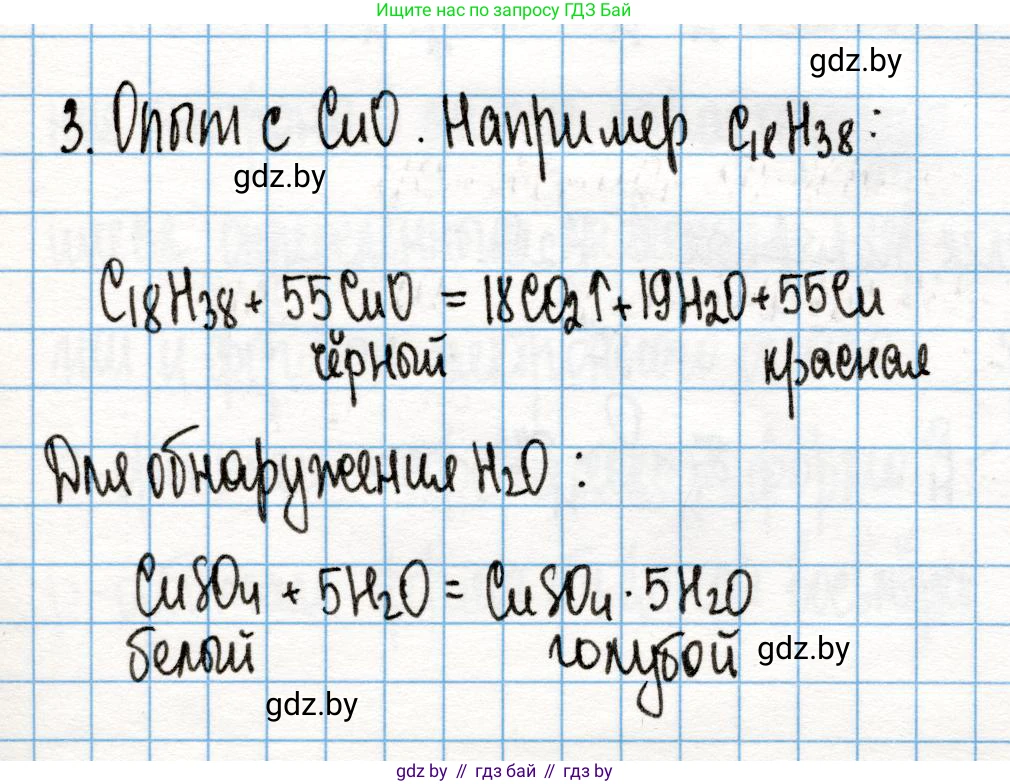 Ищите нас по запросу ГДЗ Бай
gdz.by
3. Опыт с CuO. Например C₁₈H₃₈:
gdz.by
C₁₈H₃₈ + 55CuO = 18CO₂↑ + 19H₂O + 55Cu
чёрный красная
Для обнаружения H₂O :
CuSO₄ + 5H₂O = CuSO₄ · 5H₂O
белый голубой gdz.by
gdz.by
gdz by // гдз бай // gdz by